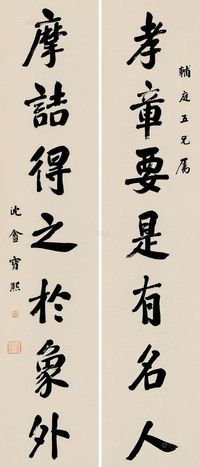 輔庭五兄属
孝章要是有名人
摩詰得之於象外
沈盦寶熙